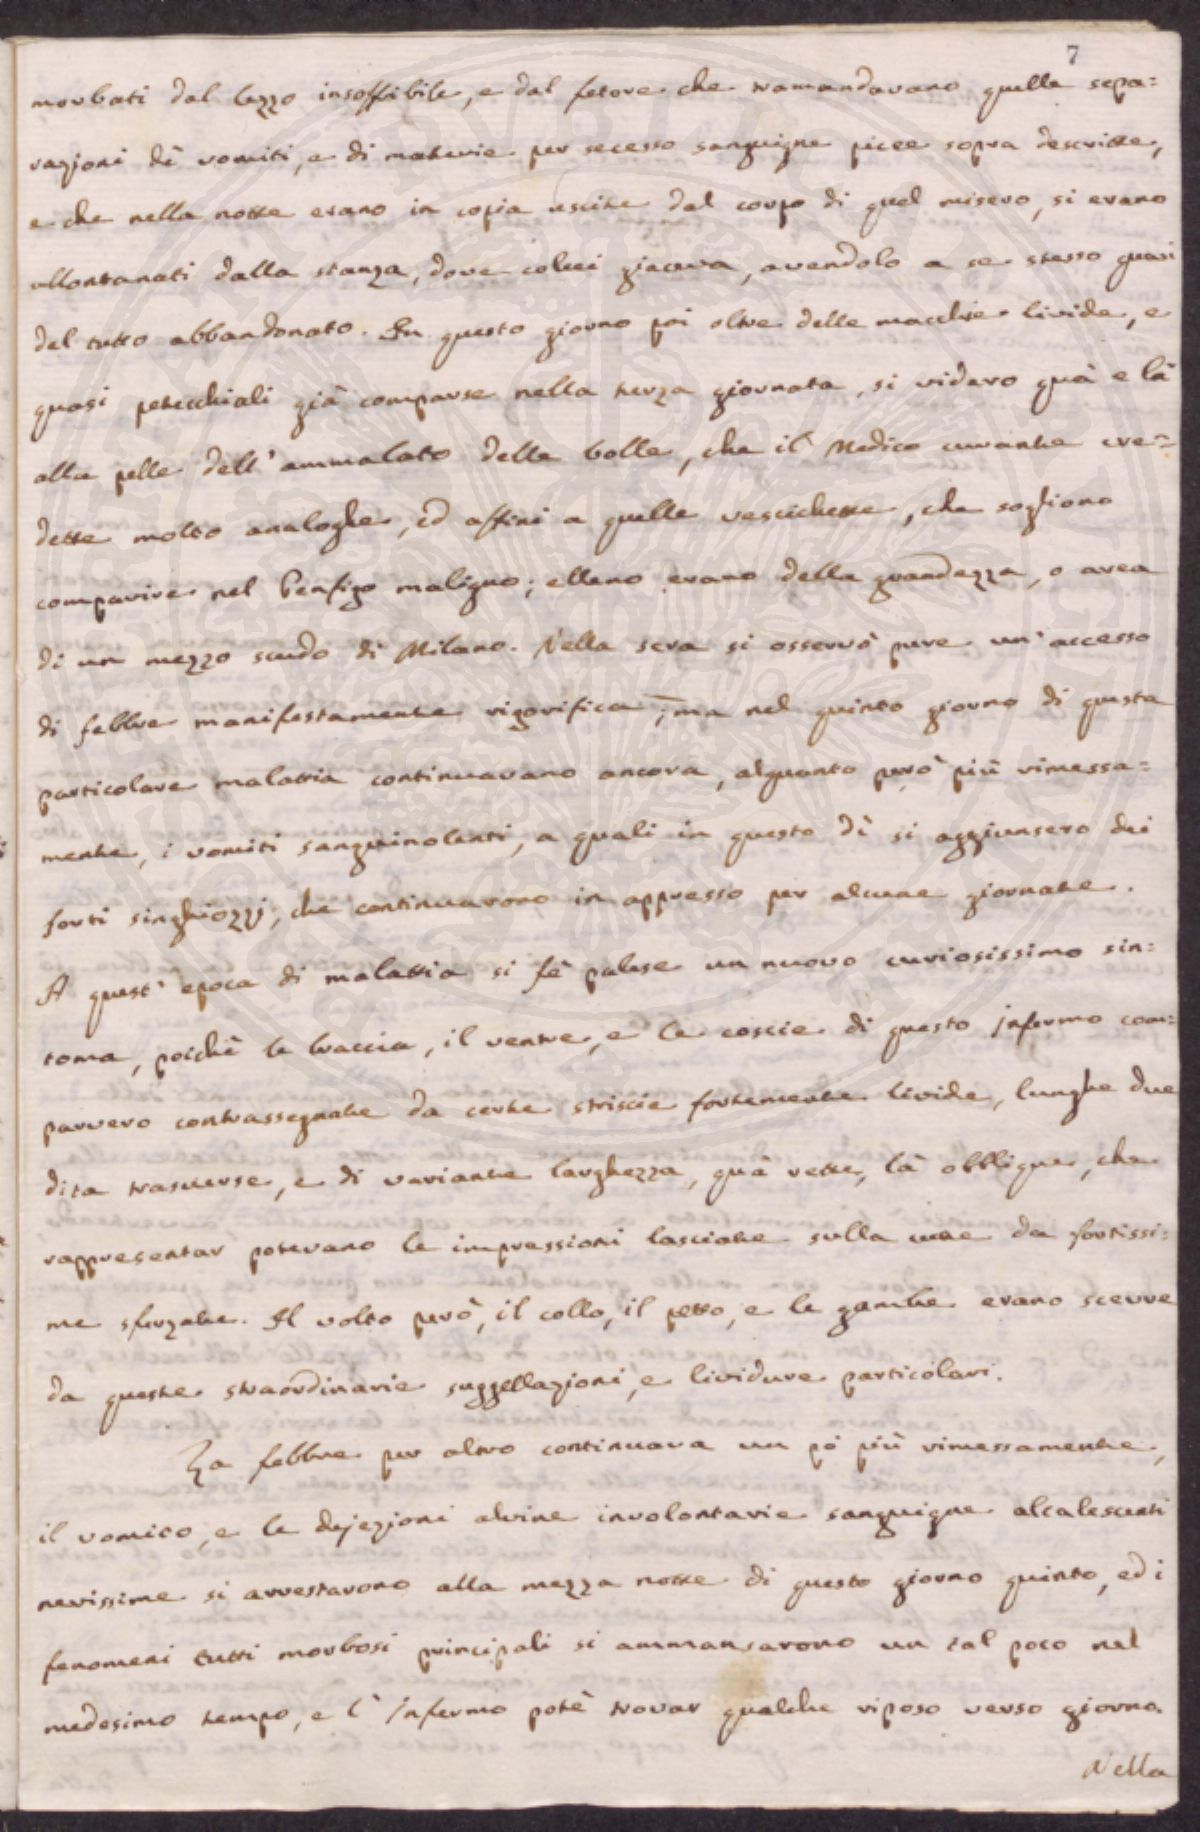 7
morbati dal lezzo insoffribile, e dal fetore che tramandavano quelle sepa=
razioni di vomiti, e di materie per secesso sanguigne picee sopra descritte,
e che nella notte erano in copia uscite dal corpo di quel misero, si erano
allontanati dalla stanza, dove colui giaceva, avendolo a se stesso quasi
del tutto abbandonato. In questo giorno poi oltre delle macchie livide, e
quasi petecchiali già comparse nella terza giornata, si videro quà e là
alla pelle dell'ammalato delle bolle, che il Medico curante cre=
dette molto analoghe, ed affini a quelle vescichette, che sogliono
comparire nel Penfigo maligno; elleno erano della grandezza, o area
di un mezzo scudo di Milano. Nella sera si osservò pure un'accesso
di febbre manifestamente rigorifica; ma nel quinto giorno di questa
particolare malattia continuavano ancora, alquanto però più rimessa=
mente, i vomiti sanguinolenti, a quali in questo dì si aggiunsero dei
forti singhiozzi, che continuarono in appresso per alcune giornate.
A quest'epoca di malattia si fè palese un nuovo curiosissimo sin=
toma, poichè le braccia, il ventre, e le coscie di questo infermo com=
parvero contrassegnate da certe striscie fortemente livide, lunghe due
dita trasverse, e di variante larghezza, quà rette, là obblique, che
rappresentar potevano le impressioni lasciate sulla cute da fortissi=
me sferzate. Il volto però, il collo, il petto, e le gambe erano scevre
da queste straordinarie suggellazioni, e lividure particolari.
La febbre per altro continuava un pò più rimessamente,
il vomito, e le dejezioni alvine involontarie sanguigne alcalescenti
nerissime si arrestarono alla mezza notte di questo giorno quinto, ed i
fenomeni tutti morbosi principali si ammansarono un tal poco nel
medesimo tempo, e l'infermo potè trovar qualche riposo verso giorno.
Nella